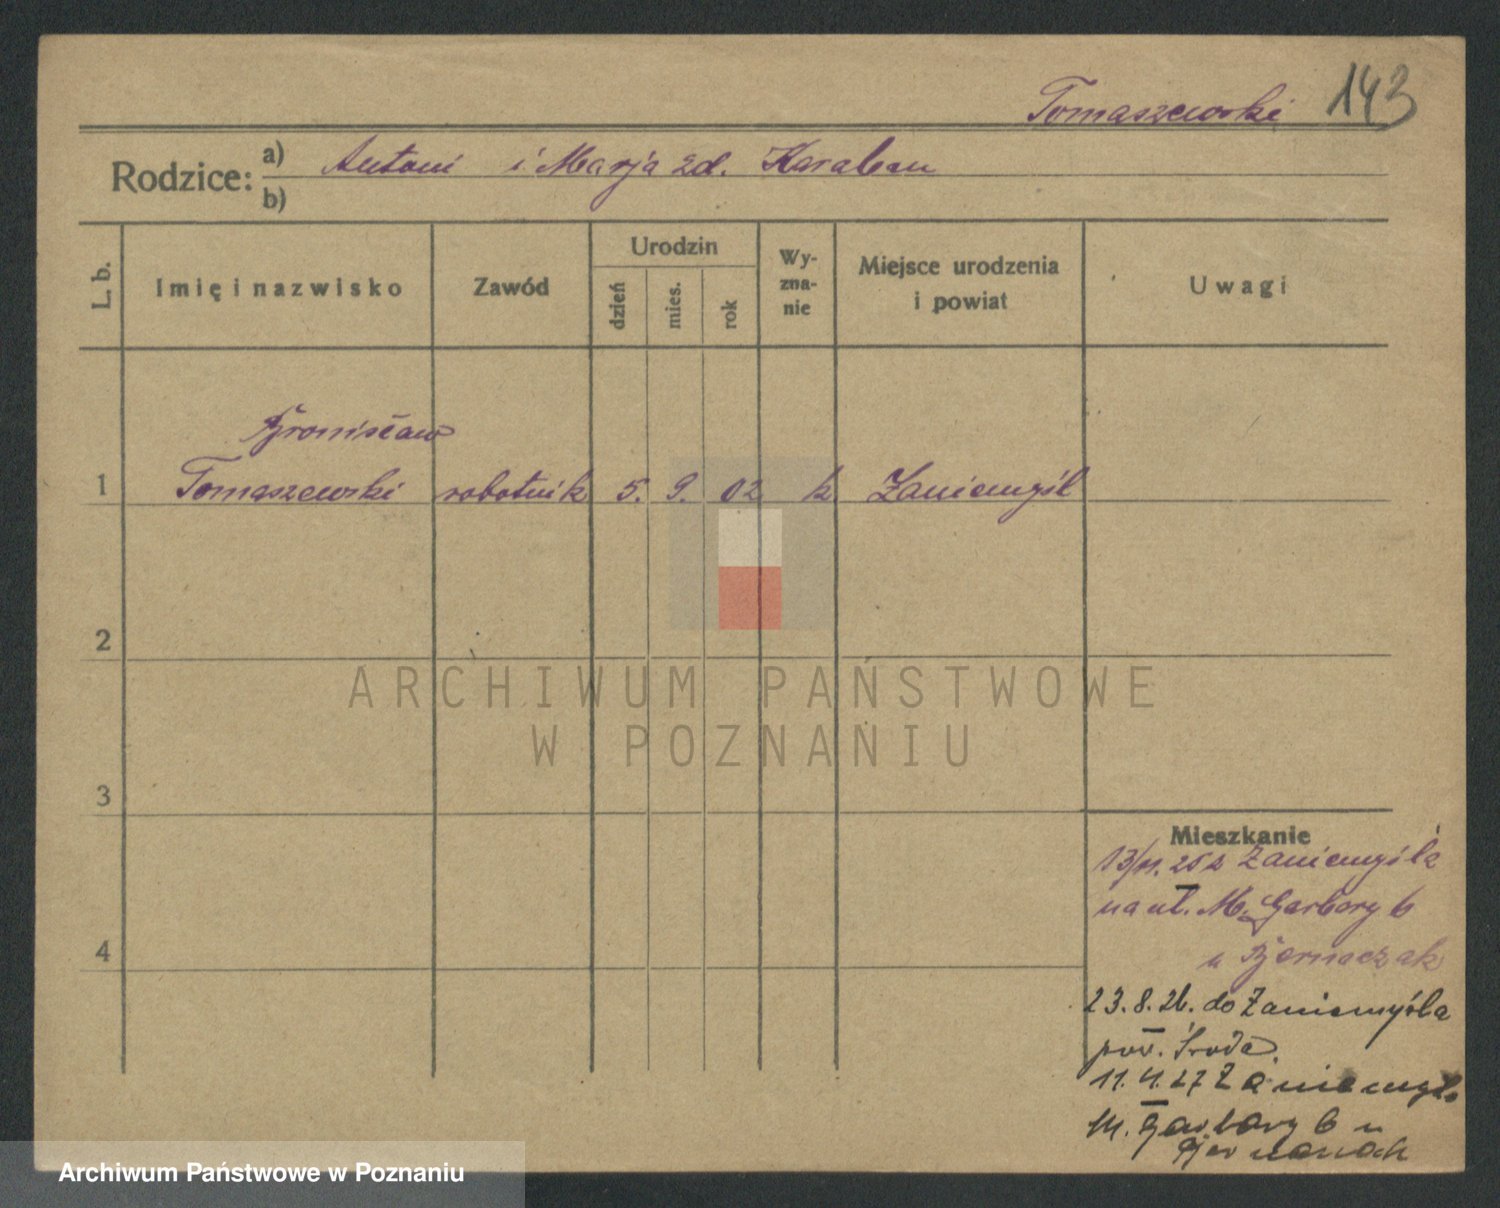 Tomaszewski 143
Rodzice: a) Antoni i Marja zd. Karaban
b)
L. b. Imię i nazwisko Zawód Urodzin dzień mies. rok Wy-zna-nie Miejsce urodzenia i powiat Uwagi
Bronisław
1 Tomaszewski robotnik 5. 9. 02 k Zaniemyśl
2
ARCHIWUM PAŃSTWOWE
W POZNANIU
3
Mieszkanie
13/11. 25 z Zaniemyśla
na ul. M. Garbary 6
4
u Biernaczak
23. 8. 26. do Zaniemyśla
pow. Środa.
11. 4. 27 Zaniemyśl
M. Garbary 6 u
Archiwum Państwowe w Poznaniu